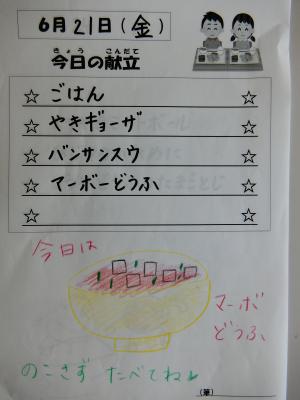 6月21日(金)
きょう こんだて
今日の献立
☆ ごはん ☆
☆ やきギョーザ ☆
☆ バンサンスウ ☆
☆ マーボーどうふ ☆
☆ ☆
今日は
マーボ
どうふ
のこさず たべてね
(筆)